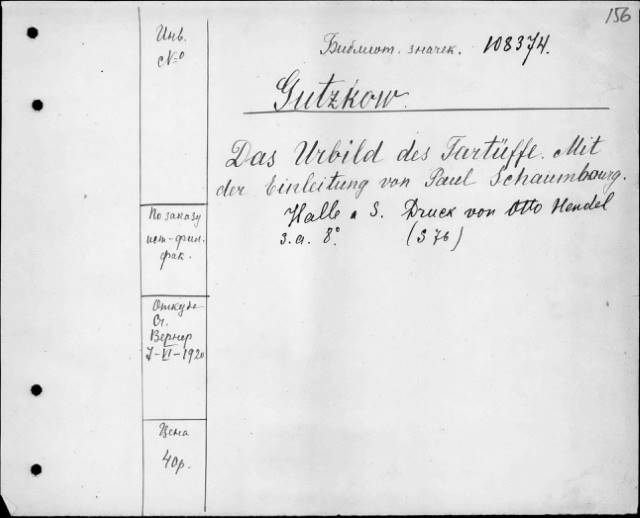 156
Инв.
№
Библиот. значек. 108374.
Gutzkow.
Das Urbild des Tartüffe. Mit
der Einleitung von Paul Schaumbourg.
Halle a S. Druck von Otto Hendel
з. а. 8° (S 76)
По заказу
ист-фил.
фак.
Откуда
Ст.
Вернер
7-VI-1920
Цена
40р.